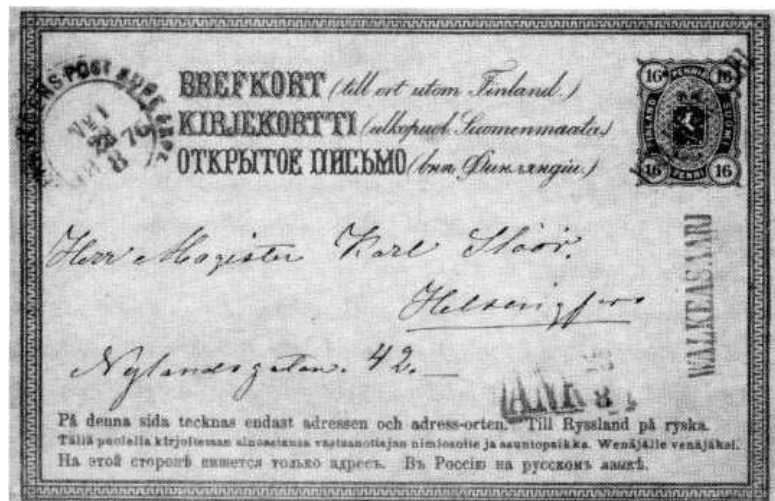 BREFKORT (till ort utom Finland.)
KIRJEKORTTI (ulkopuol. Suomenmaata)
ОТКРЫТОЕ ПИСЬМО (внѣ Финляндіи.)
16 PENNIÄ 16
FINLAND SUOMI
16 PENNI 16
76
8
WALKEASAARI
Herr Magister Karl Slöör.
Helsingfors
Nylandsgatan. 42.
ANK
8
På denna sida tecknas endast adressen och adress-orten. Till Ryssland på ryska.
Tällä puolella kirjoitetaan ainoastansa vastaanottajan nimiosoite ja asuntopaikka. Wenäjälle venäjäksi.
На этой сторонѣ пишется только адресъ. Въ Россію на русскомъ языкѣ.